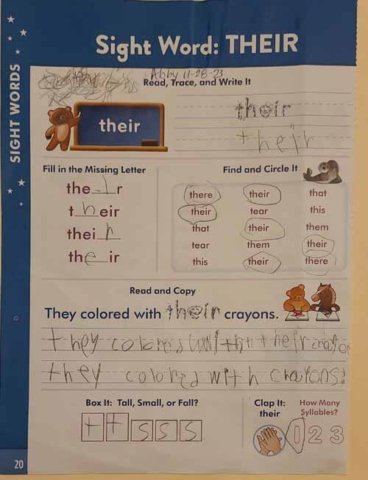 Sight Word: THEIR
SIGHT WORDS
Abby 11-28-23
Read, Trace, and Write It
their
their
their
Fill in the Missing Letter
the i r
t h eir
thei r
th e ir
Find and Circle It
there their that
their tear this
that their them
tear them their
this their there
Read and Copy
They colored with their crayons.
they colored with their crayons
they colored with crayons.
Box It: Tall, Small, or Fall?
t t s s s
Clap It:
their
How Many
Syllables?
1 2 3
20